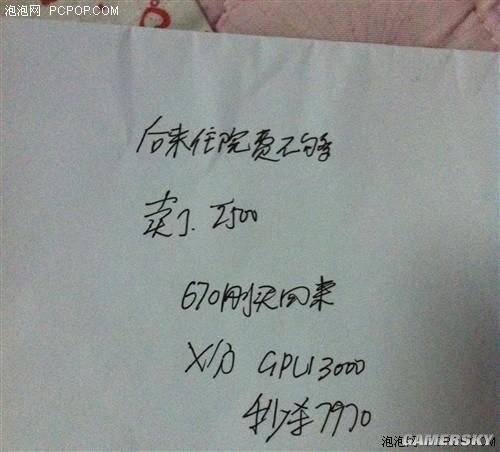 泡泡网 PCPOP.COM
后来住院费不够
卖了. 2500
670刚买回来
X分 GPU 13000
秒杀7970
泡泡网 GAMERSKY